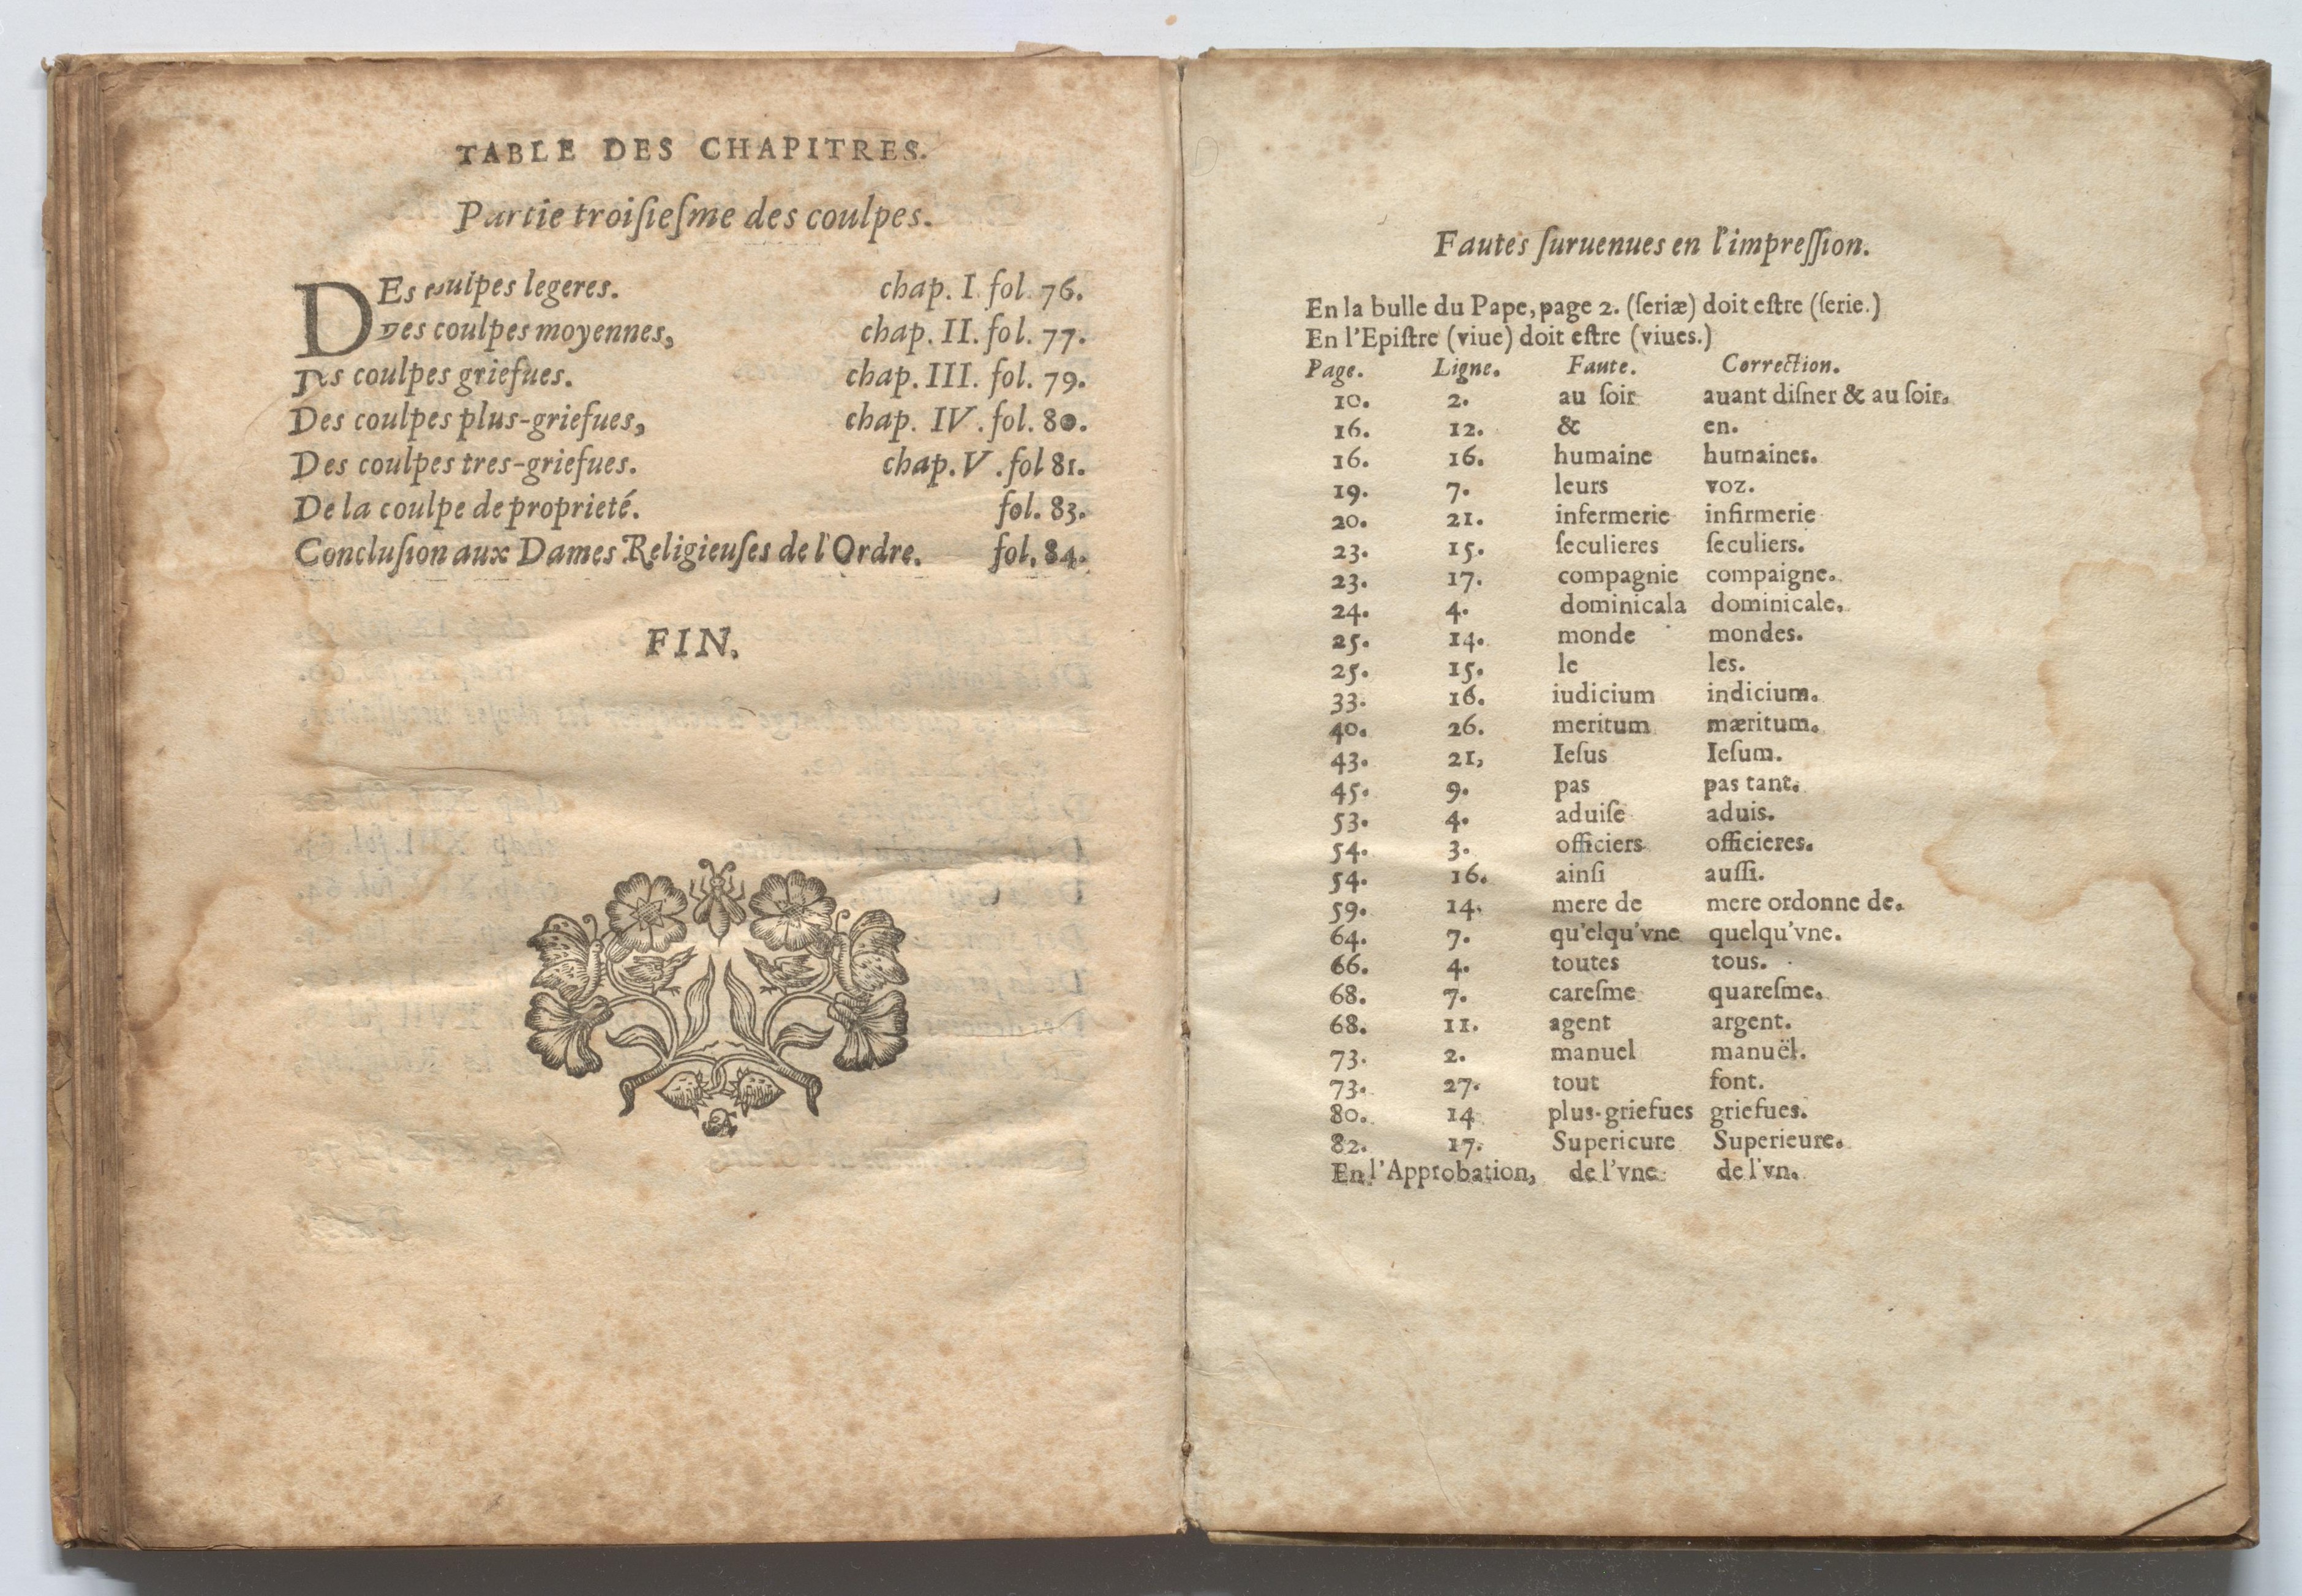 TABLE DES CHAPITRES.
Partie troiſieſme des coulpes.
DEs coulpes legeres. chap. I. fol. 76.
Des coulpes moyennes, chap. II. fol. 77.
Des coulpes griefues. chap. III. fol. 79.
Des coulpes plus-griefues, chap. IV. fol. 80.
Des coulpes tres-griefues. chap. V. fol 81.
De la coulpe de proprieté. fol. 83.
Concluſion aux Dames Religieuſes de l'Ordre. fol. 84.
FIN.
Fautes ſuruenues en l'impreſſion.
En la bulle du Pape, page 2. (ſeriæ) doit eſtre (ſerie.)
En l'Epiſtre (viue) doit eſtre (viues.)
Page. Ligne. Faute. Correction.
10. 2. au ſoir auant diſner & au ſoir.
16. 12. & en.
16. 16. humaine humaines.
19. 7. leurs voz.
20. 21. infermerie infirmerie
23. 15. ſeculieres ſeculiers.
23. 17. compagnie compaigne.
24. 4. dominicala dominicale.
25. 14. monde mondes.
25. 15. le les.
33. 16. iudicium indicium.
40. 26. meritum mæritum.
43. 21, Ieſus Ieſum.
45. 9. pas pas tant.
53. 4. aduiſe aduis.
54. 3. officiers officieres.
54. 16. ainſi auſſi.
59. 14. mere de mere ordonne de.
64. 7. qu'elqu'vne quelqu'vne.
66. 4. toutes tous.
68. 7. careſme quareſme.
68. 11. agent argent.
73. 2. manuel manuël.
73. 27. tout font.
80. 14 plus-griefues griefues.
82. 17. Supericure Superieure.
En l'Approbation, de l'vne de l'vn.